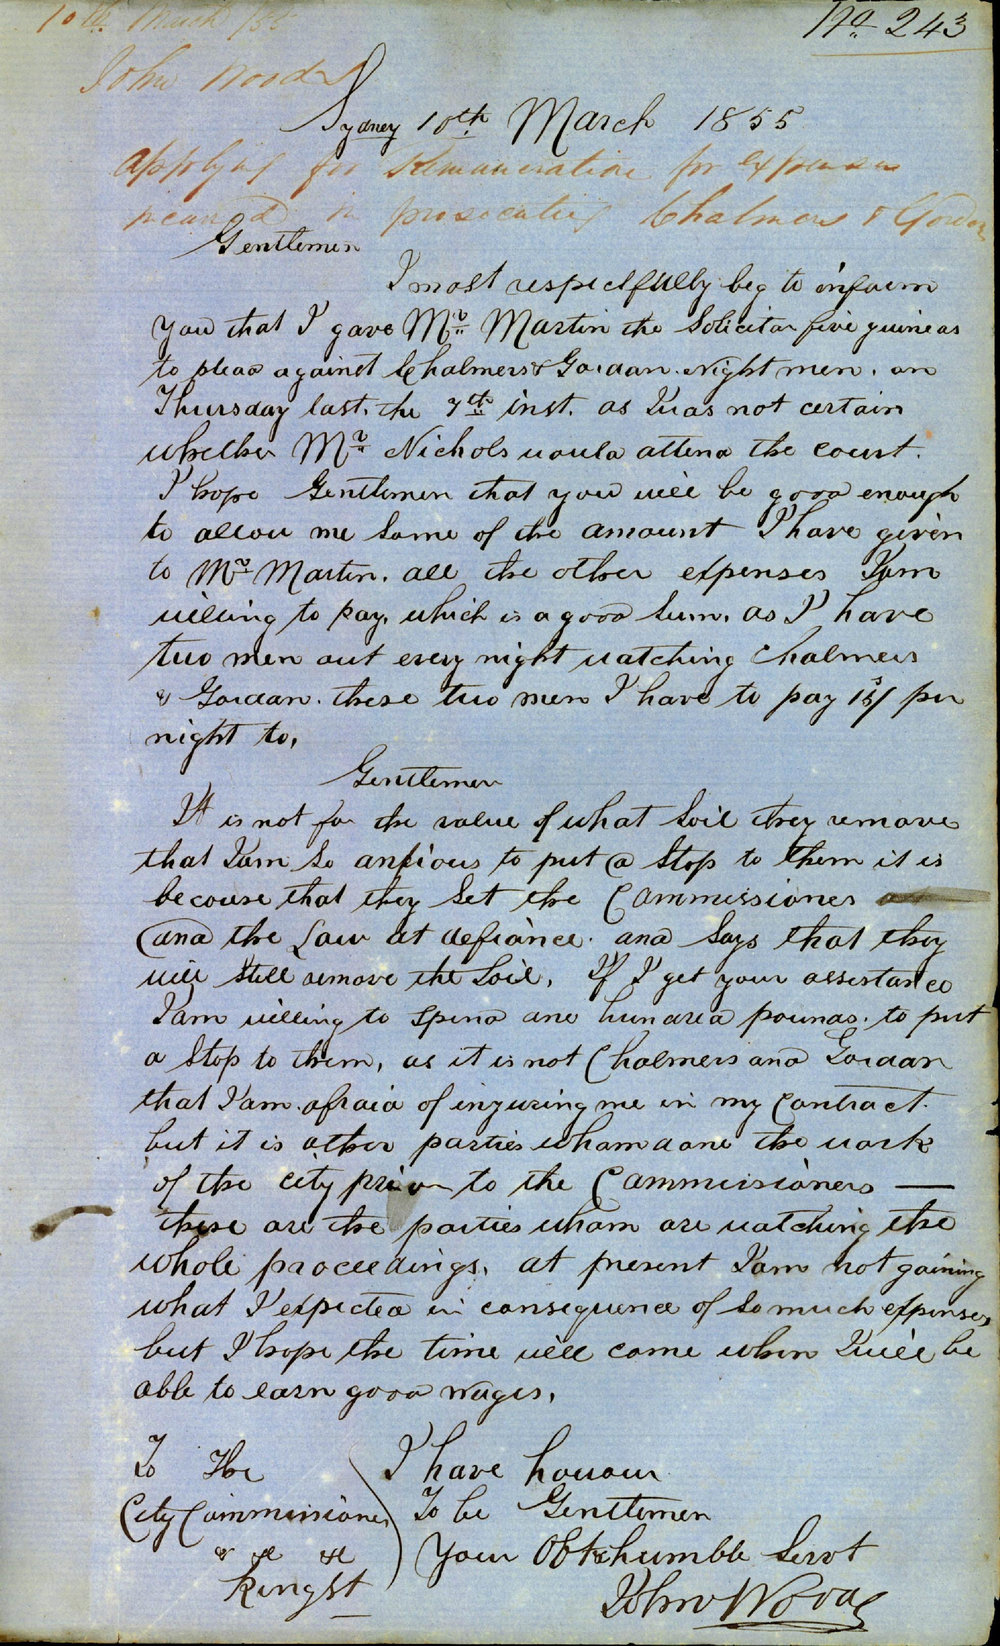 10th March /55
No 243
John Woods
Sydney 10th March 1855
Applying for Remuneration for expenses
incurred in prosecuting Chalmers & Gordon
Gentlemen
I most respectfully beg to inform
you that I gave Mr Martin the Solicitor five guineas
to plead against Chalmers & Gordon. Night men. on
Thursday last. the 7th inst. as I was not certain
whether Mr Nichols would attend the court.
I hope Gentlemen that you will be good enough
to allow me some of the amount I have given
to Mr Martin. all the other expenses I am
willing to pay. which is a good Sum. as I have
two men out every night watching Chalmers
& Gordan. these two men I have to pay 15/ per
night to.
Gentlemen
It is not for the value of what Soil they remove
that I am so anxious to put a Stop to them it is
becouse that they Set the Commissioner
and the Law at defiance. and Says that they
will still remove the Soil. If I get your assistance
I am willing to Spend one hundred pounds. to put
a Stop to them, as it is not Chalmers and Gordan
that I am afraid of injuring me in my Contract.
but it is other parties whom done the work
of the city prior to the Commissioners —
these are the parties whom are watching the
whole proceedings. at present I am not gaining
what I expected in consequence of so much expenses
but I hope the time will come when I will be
able to earn good wages.
To The
City Commissioners
& &c &c
Kingst
I have honour
To be Gentlemen
Your Obt humble Servt
John Woods